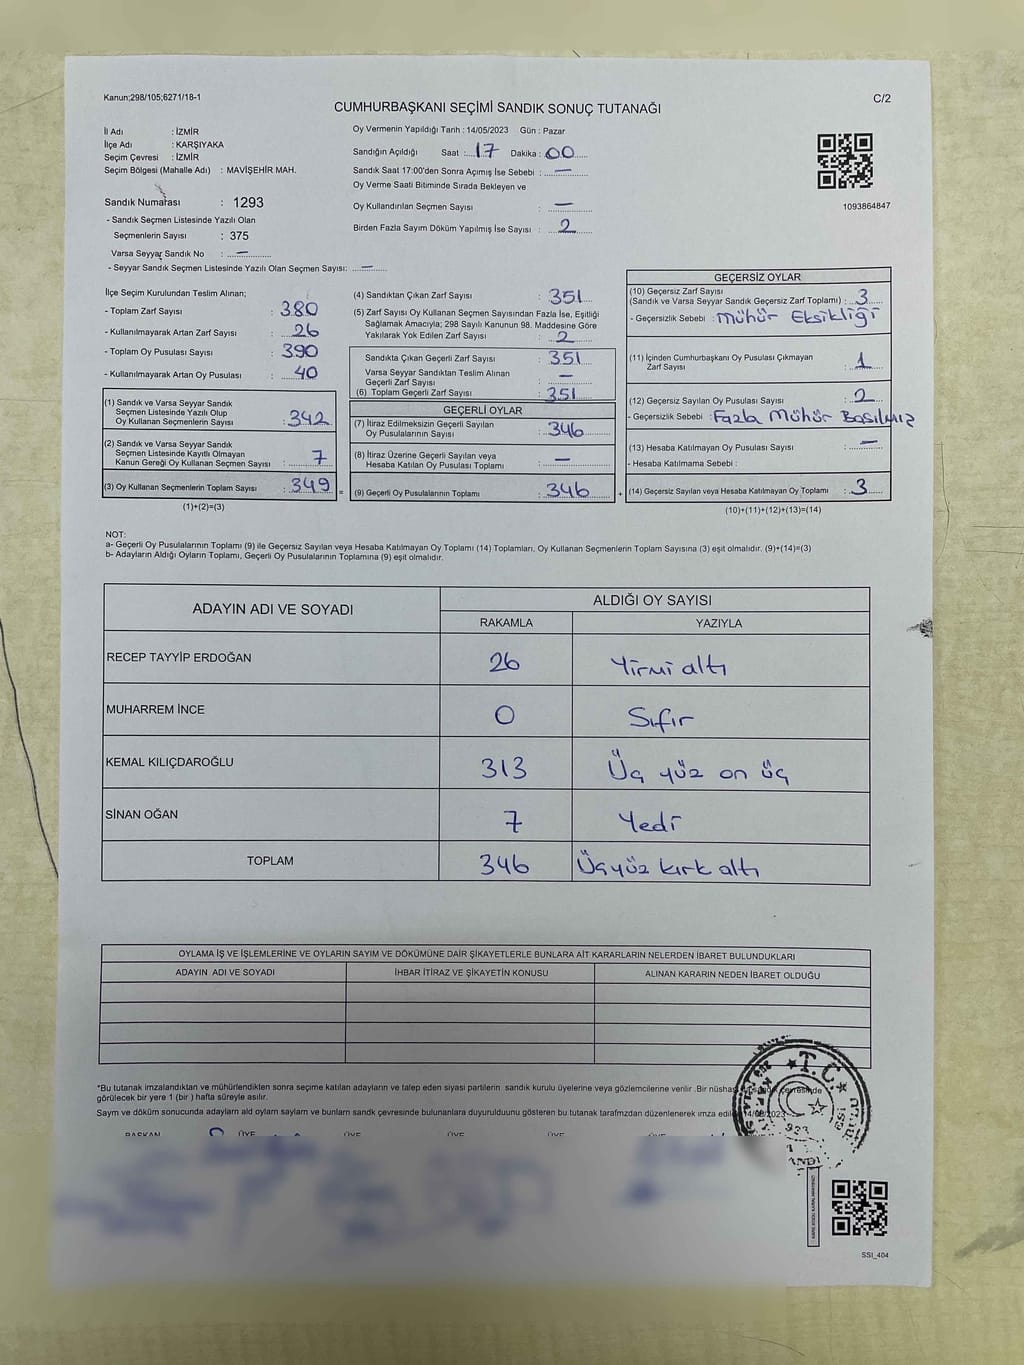 Kanun;298/105;6271/18-1
C/2
CUMHURBAŞKANI SEÇİMİ SANDIK SONUÇ TUTANAĞI
İl Adı : İZMİR
İlçe Adı : KARŞIYAKA
Seçim Çevresi : İZMİR
Seçim Bölgesi (Mahalle Adı) : MAVİŞEHİR MAH.
Sandık Numarası : 1293
- Sandık Seçmen Listesinde Yazılı Olan
Seçmenlerin Sayısı : 375
Varsa Seyyar Sandık No : —
- Seyyar Sandık Seçmen Listesinde Yazılı Olan Seçmen Sayısı: —
Oy Vermenin Yapıldığı Tarih : 14/05/2023 Gün : Pazar
Sandığın Açıldığı Saat : 17 Dakika : 00
Sandık Saat 17:00'den Sonra Açımış İse Sebebi : —
Oy Verme Saati Bitiminde Sırada Bekleyen ve
Oy Kullandırılan Seçmen Sayısı : —
Birden Fazla Sayım Döküm Yapılmış İse Sayısı : 2
1093864847
İlçe Seçim Kurulundan Teslim Alınan;
- Toplam Zarf Sayısı : 380
- Kullanılmayarak Artan Zarf Sayısı : 26
- Toplam Oy Pusulası Sayısı : 390
- Kullanılmayarak Artan Oy Pusulası : 40
(1) Sandık ve Varsa Seyyar Sandık
Seçmen Listesinde Yazılı Olup
Oy Kullanan Seçmenlerin Sayısı : 342
(2) Sandık ve Varsa Seyyar Sandık
Seçmen Listesinde Kayıtlı Olmayan
Kanun Gereği Oy Kullanan Seçmen Sayısı : 7
(3) Oy Kullanan Seçmenlerin Toplam Sayısı : 349 =
(1)+(2)=(3)
(4) Sandıktan Çıkan Zarf Sayısı : 351
(5) Zarf Sayısı Oy Kullanan Seçmen Sayısından Fazla İse, Eşitliği
Sağlamak Amacıyla; 298 Sayılı Kanunun 98. Maddesine Göre
Yakılarak Yok Edilen Zarf Sayısı : 2
Sandıkta Çıkan Geçerli Zarf Sayısı : 351
Varsa Seyyar Sandıktan Teslim Alınan
Geçerli Zarf Sayısı : —
(6) Toplam Geçerli Zarf Sayısı : 351
GEÇERLİ OYLAR
(7) İtiraz Edilmeksizin Geçerli Sayılan
Oy Pusulalarının Sayısı : 346
(8) İtiraz Üzerine Geçerli Sayılan veya
Hesaba Katılan Oy Pusulası Toplamı : —
(9) Geçerli Oy Pusulalarının Toplamı : 346 +
GEÇERSİZ OYLAR
(10) Geçersiz Zarf Sayısı
(Sandık ve Varsa Seyyar Sandık Geçersiz Zarf Toplamı) : 3
- Geçersizlik Sebebi : Mühür Eksikliği
(11) İçinden Cumhurbaşkanı Oy Pusulası Çıkmayan
Zarf Sayısı : 1
(12) Geçersiz Sayılan Oy Pusulası Sayısı : 2
- Geçersizlik Sebebi : Fazla Mühür Basılmış
(13) Hesaba Katılmayan Oy Pusulası Sayısı : —
- Hesaba Katılmama Sebebi :
(14) Geçersiz Sayılan veya Hesaba Katılmayan Oy Toplamı : 3
(10)+(11)+(12)+(13)=(14)
NOT:
a- Geçerli Oy Pusulalarının Toplamı (9) ile Geçersiz Sayılan veya Hesaba Katılmayan Oy Toplamı (14) Toplamları, Oy Kullanan Seçmenlerin Toplam Sayısına (3) eşit olmalıdır. (9)+(14)=(3)
b- Adayların Aldığı Oyların Toplamı, Geçerli Oy Pusulalarının Toplamına (9) eşit olmalıdır.
ADAYIN ADI VE SOYADI
ALDIĞI OY SAYISI
RAKAMLA YAZIYLA
RECEP TAYYİP ERDOĞAN 26 Yirmi altı
MUHARREM İNCE 0 Sıfır
KEMAL KILIÇDAROĞLU 313 Üç yüz on üç
SİNAN OĞAN 7 Yedi
TOPLAM 346 Üçyüz kırk altı
OYLAMA İŞ VE İŞLEMLERİNE VE OYLARIN SAYIM VE DÖKÜMÜNE DAİR ŞİKAYETLERLE BUNLARA AİT KARARLARIN NELERDEN İBARET BULUNDUKLARI
ADAYIN ADI VE SOYADI İHBAR İTİRAZ VE ŞİKAYETİN KONUSU ALINAN KARARIN NEDEN İBARET OLDUĞU
*Bu tutanak imzalandıktan ve mühürlendikten sonra seçime katılan adayların ve talep eden siyasi partilerin sandık kurulu üyelerine veya gözlemcilerine verilir .Bir nüshası çevresinde
görülecek bir yere 1 (bir ) hafta süreyle asılır.
Sayım ve döküm sonucunda adayların ald oyların sayların ve bunların sandk çevresinde bulunanlara duyurulduunu gösteren bu tutanak tarafmzdan düzenlenerek imza edildi 14/05/2023
BAŞKAN ÜYE ÜYE ÜYE ÜYE ÜYE
T.C.
SSI_404